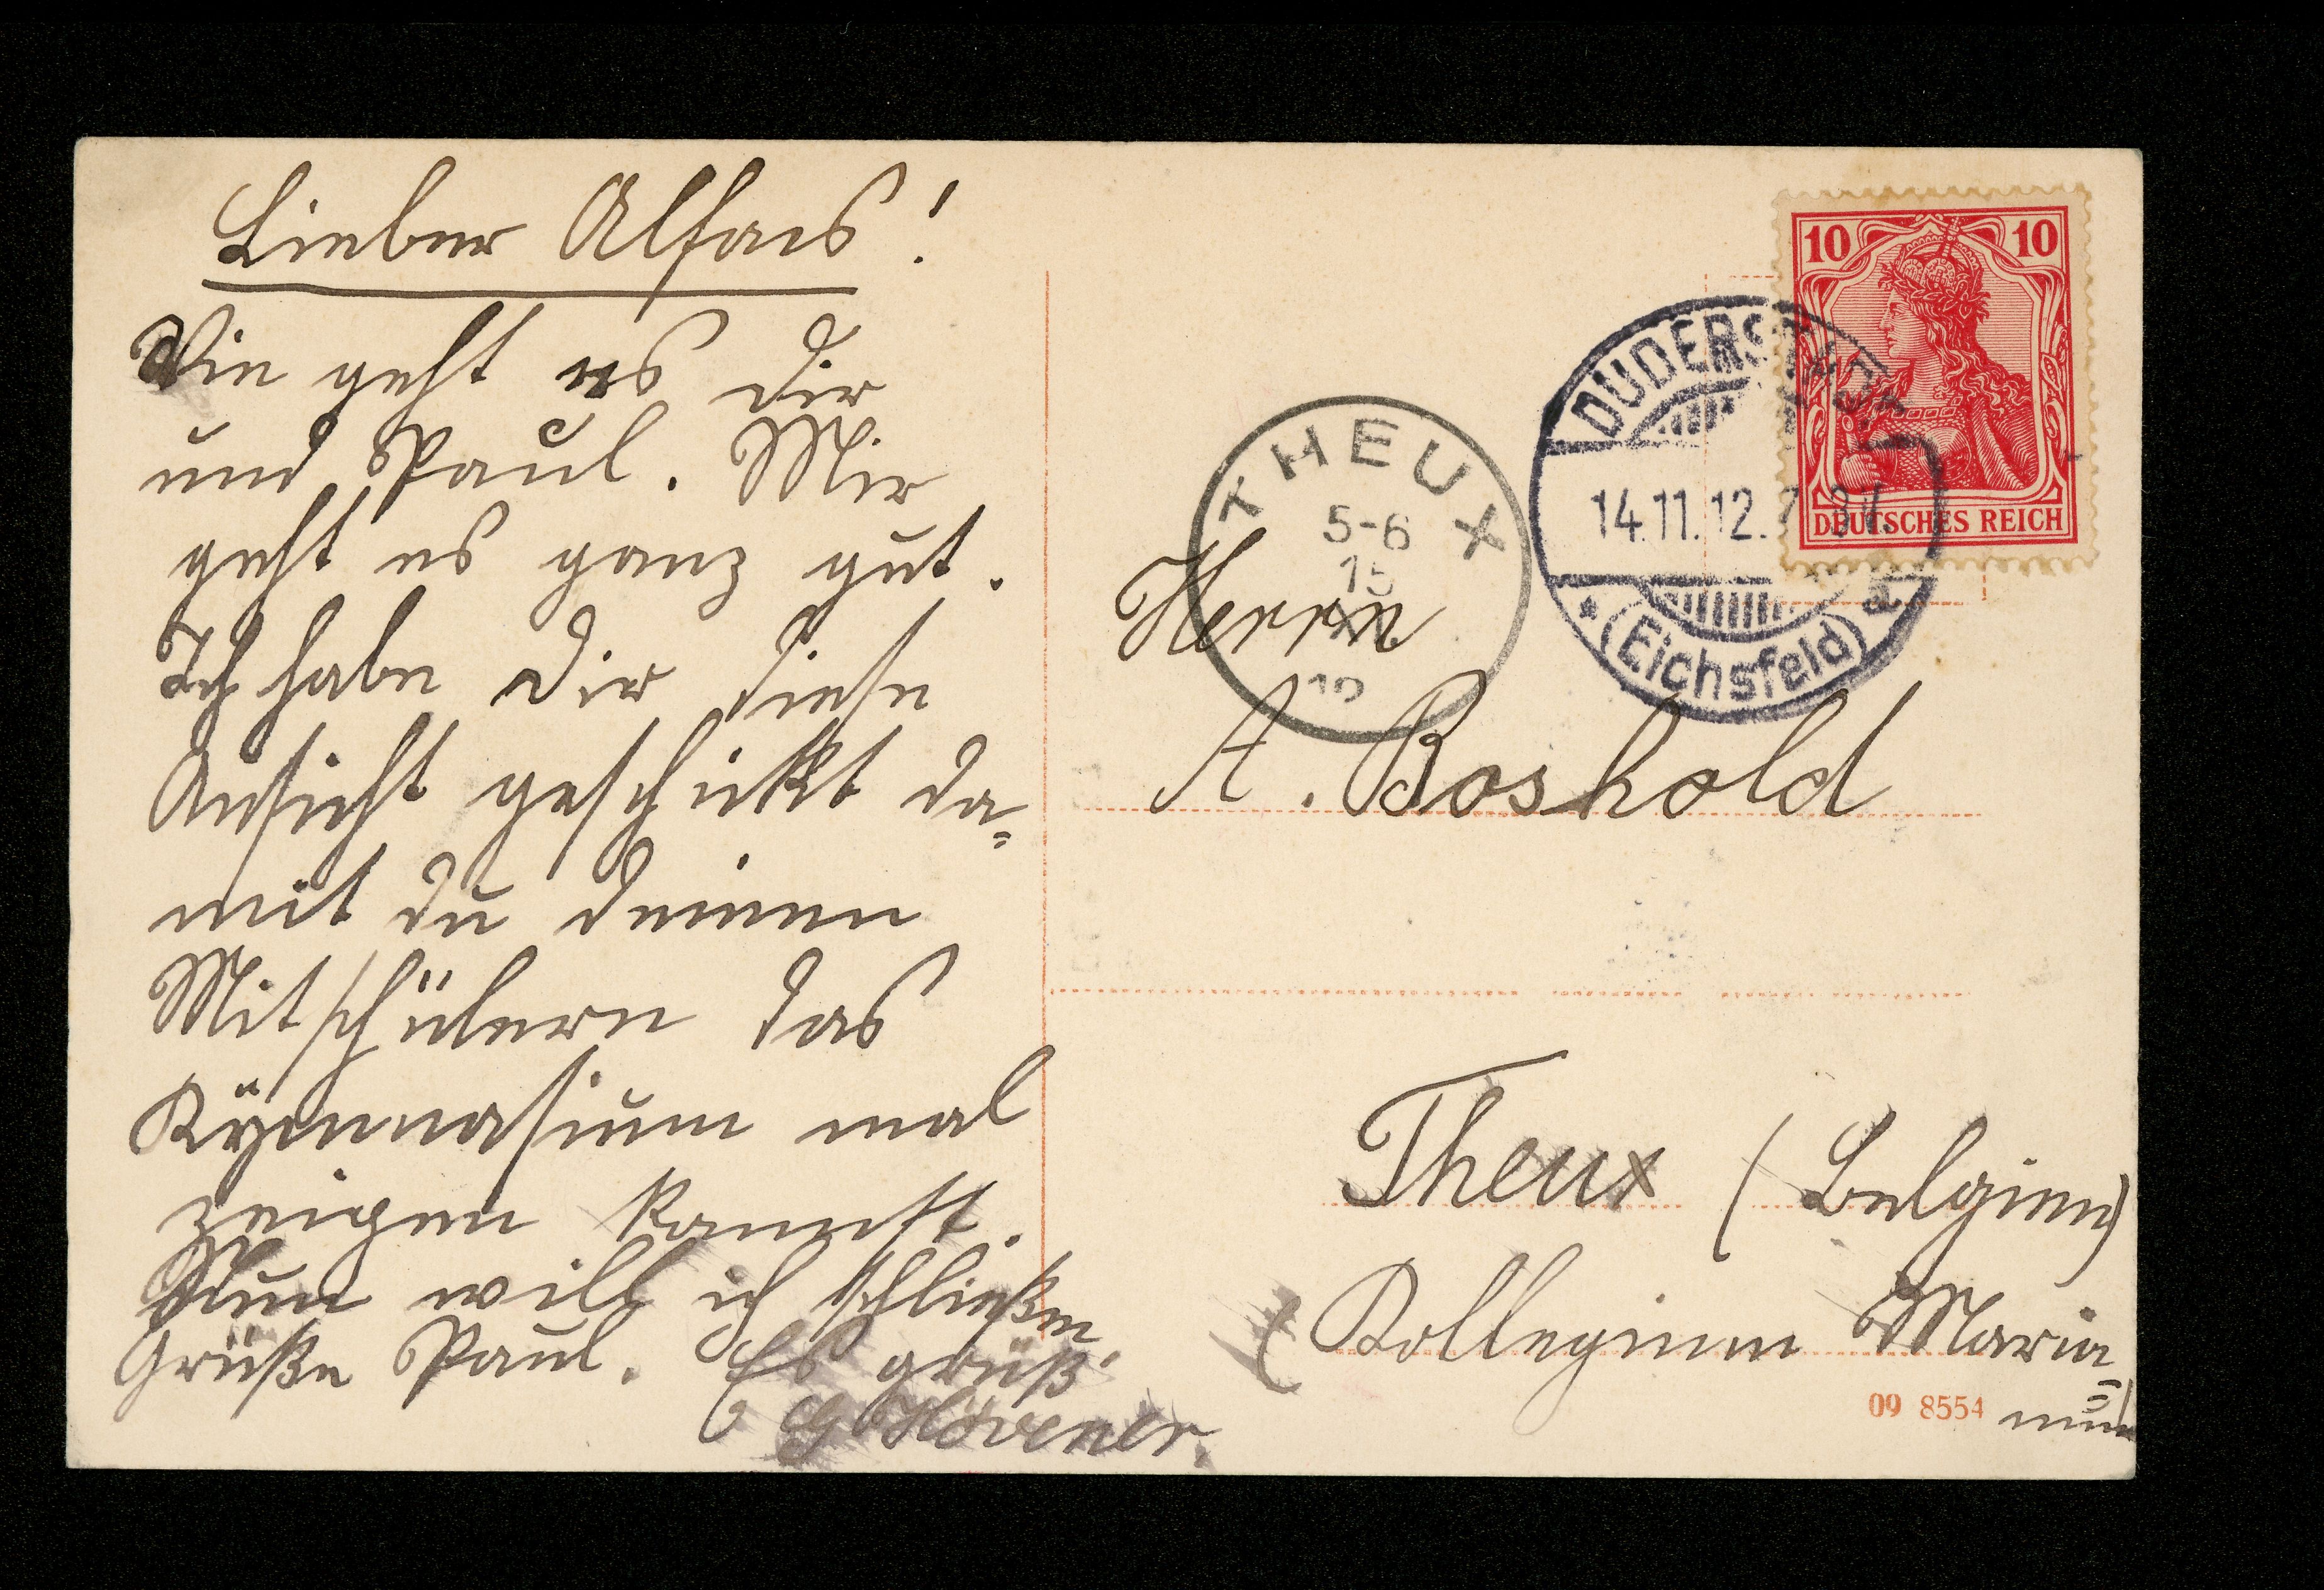 Lieber Alfons!
Wie geht es Dir
und Paul. Mir
geht es ganz gut.
Ich habe Dir diese
Ansicht geschickt da=
mit du deinen
Mitschülern das
Gymnasium mal
zeigen kannst.
Nun will ich schließen.
Grüße Paul. Es grüß
G Hövener.
10 10
DEUTSCHES REICH
DUDERSTADT
14.11.12.
* (Eichsfeld) a
THEUX
5-6
15
XI
12
Herrn
A. Boshold
Theux (Belgien)
(Kollegium Maria=
num
09 8554